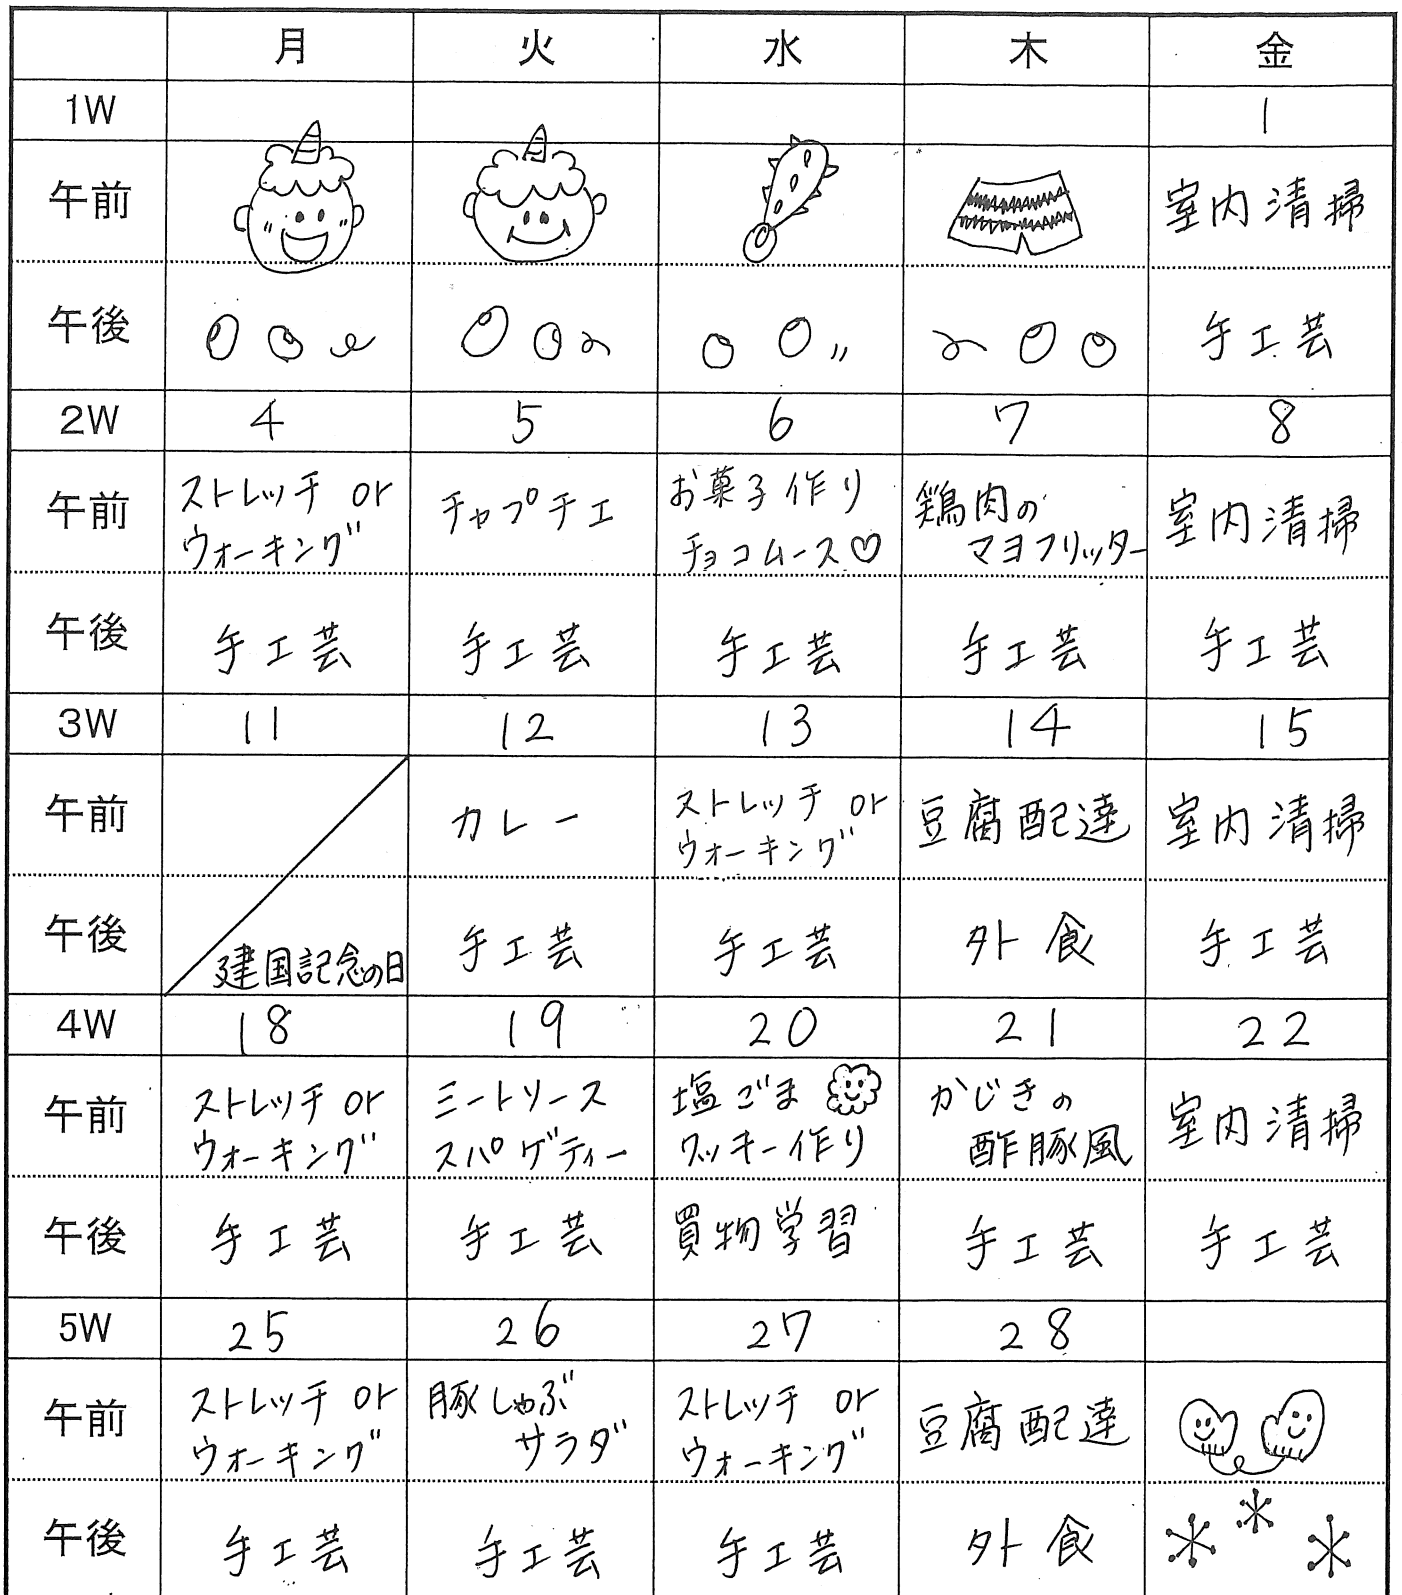 月 火 水 木 金
1W 1
午前 室内清掃
午後 手工芸
2W 4 5 6 7 8
午前 ストレッチ or ウォーキング チャプチェ お菓子作り チョコムース♡ 鶏肉の マヨフリッター 室内清掃
午後 手工芸 手工芸 手工芸 手工芸 手工芸
3W 11 12 13 14 15
午前 カレー ストレッチ or ウォーキング 豆腐配達 室内清掃
午後 建国記念の日 手工芸 手工芸 外食 手工芸
4W 18 19 20 21 22
午前 ストレッチ or ウォーキング ミートソース スパゲティー 塩ごま クッキー作り かじきの 酢豚風 室内清掃
午後 手工芸 手工芸 買物学習 手工芸 手工芸
5W 25 26 27 28
午前 ストレッチ or ウォーキング 豚しゃぶ サラダ ストレッチ or ウォーキング 豆腐配達
午後 手工芸 手工芸 手工芸 外食